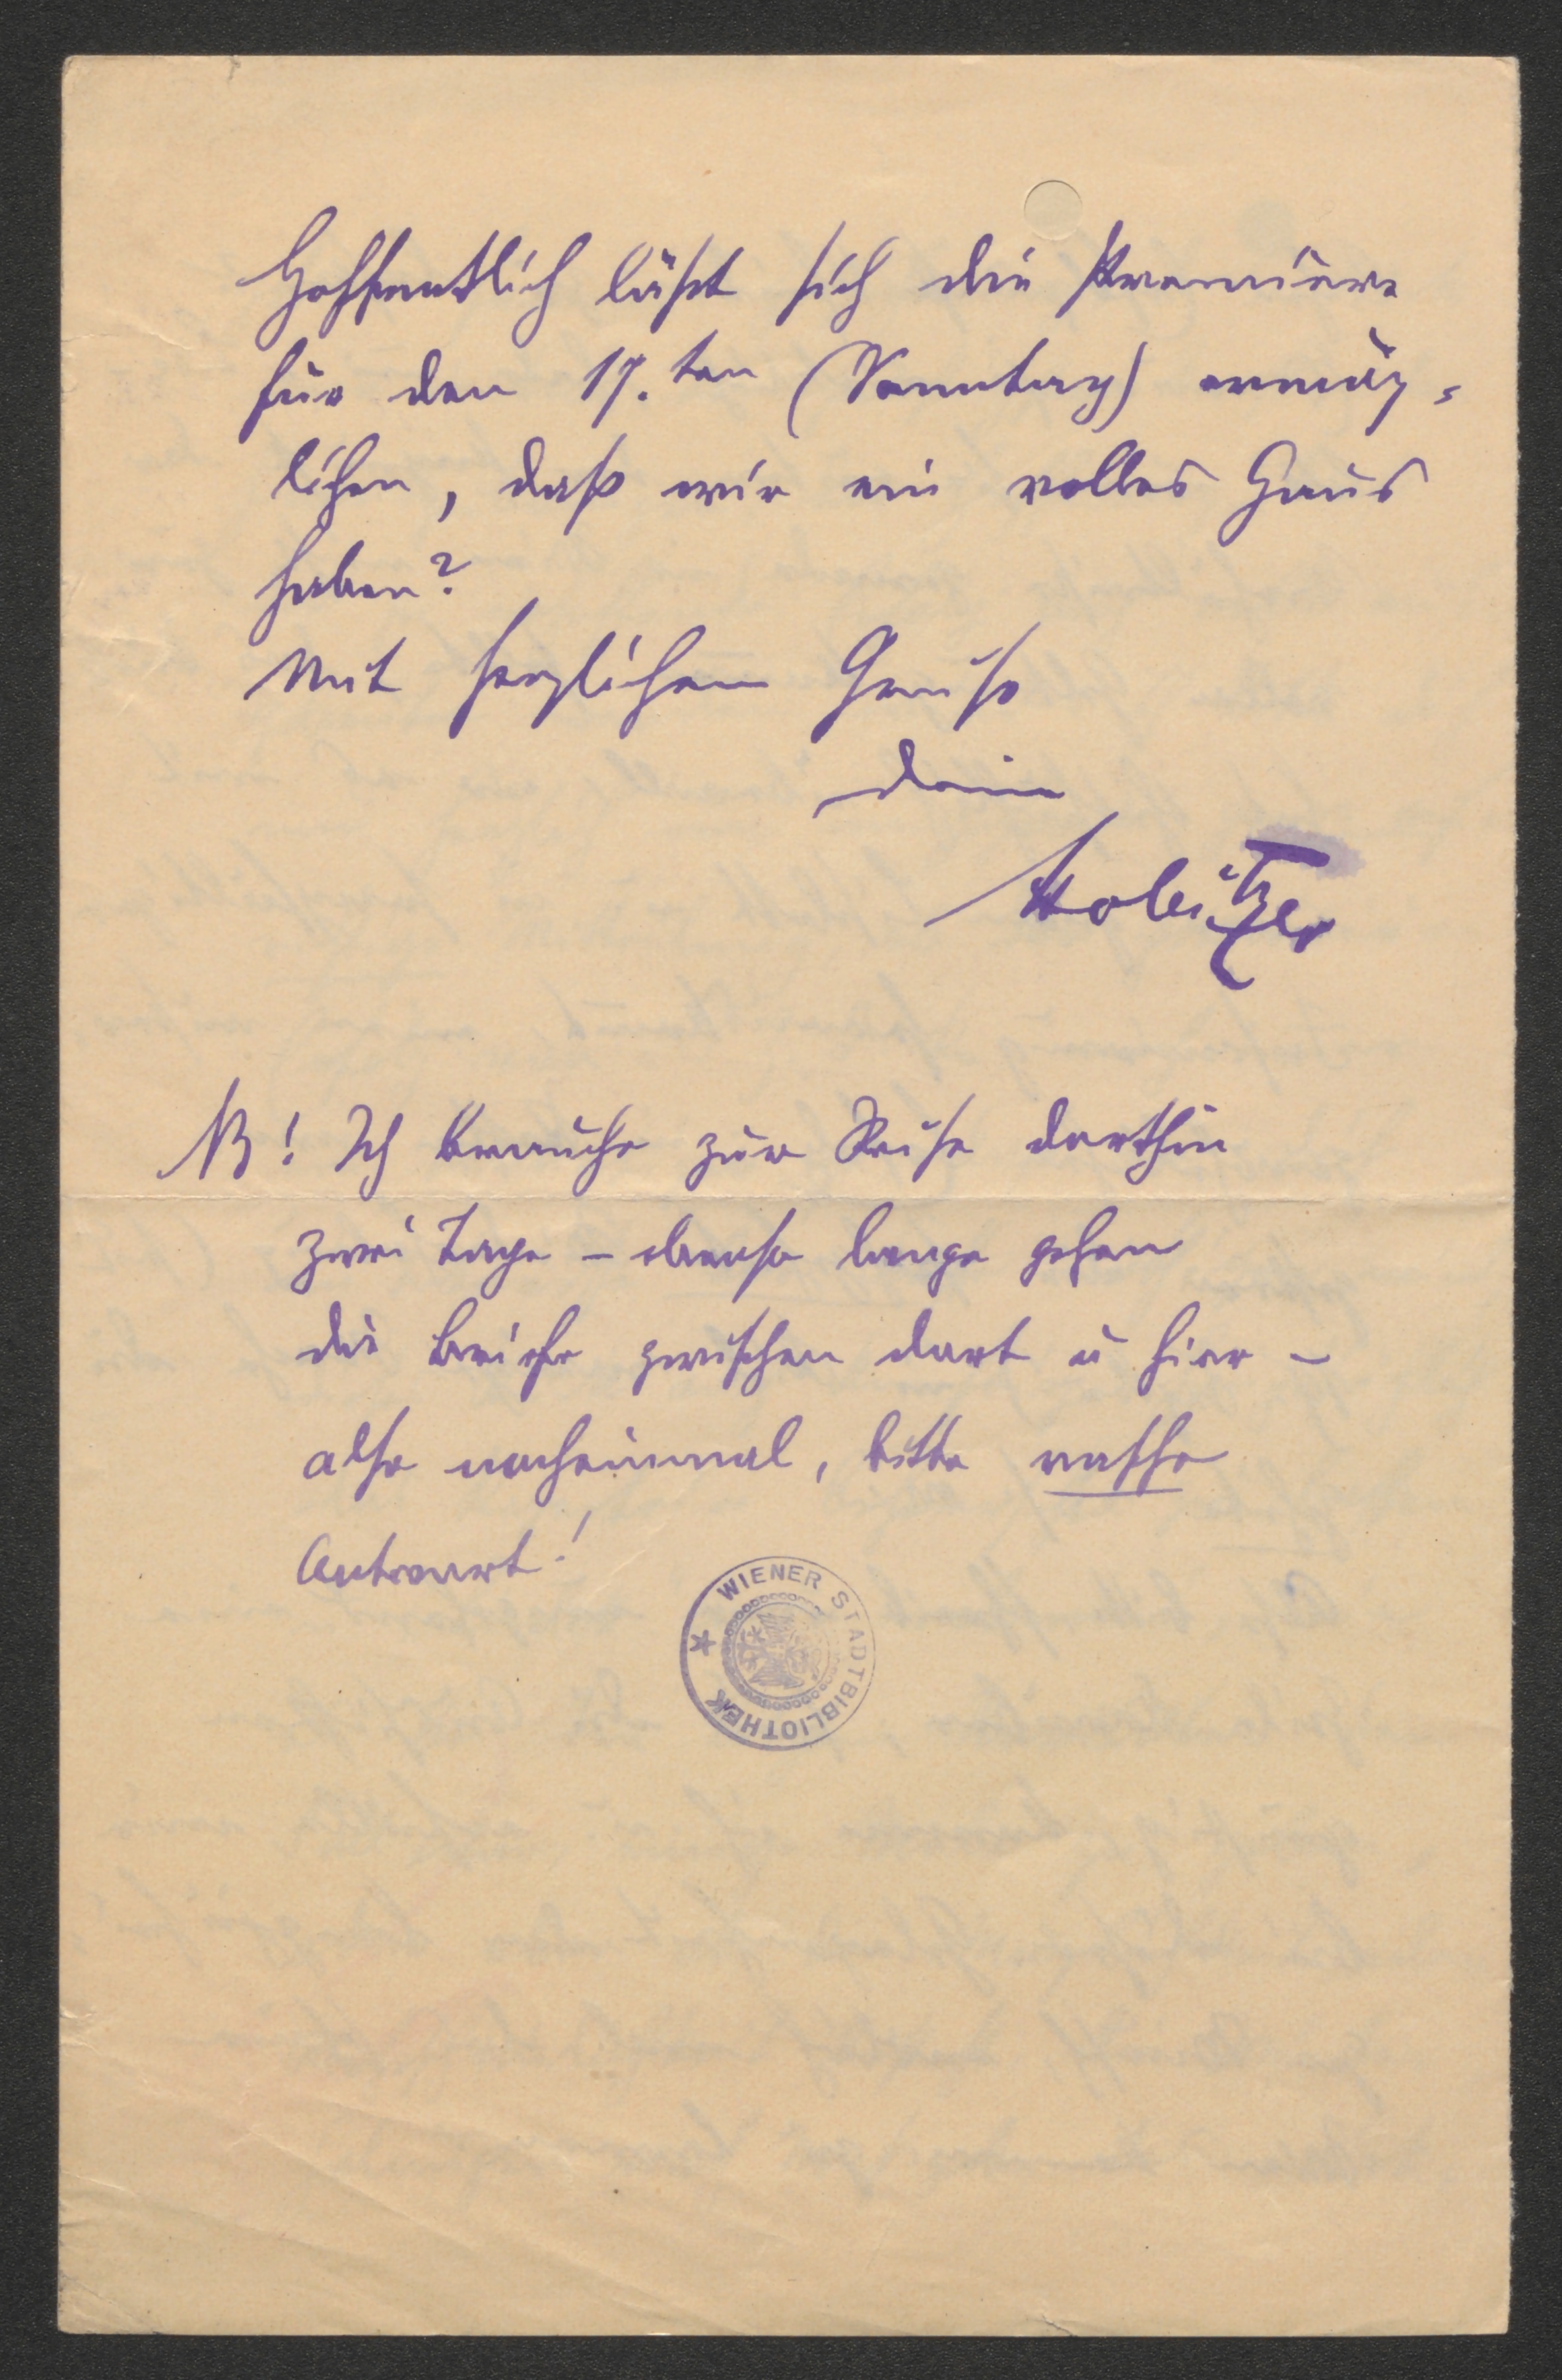 Hoffentlich läßt sich die Première
für den 17.ten (Sonntag) ermög-
lichen, daß wir ein volles Haus
haben?
Mit herzlichem Gruß
Dein
NB! Ich brauche zur Reise dorthin
zwei Tage – ebenso lange gehen
die Briefe zwischen dort u hier –
also nocheinmal, bitte rasche
Antwort!
WIENER STADTBIBLIOTHEK